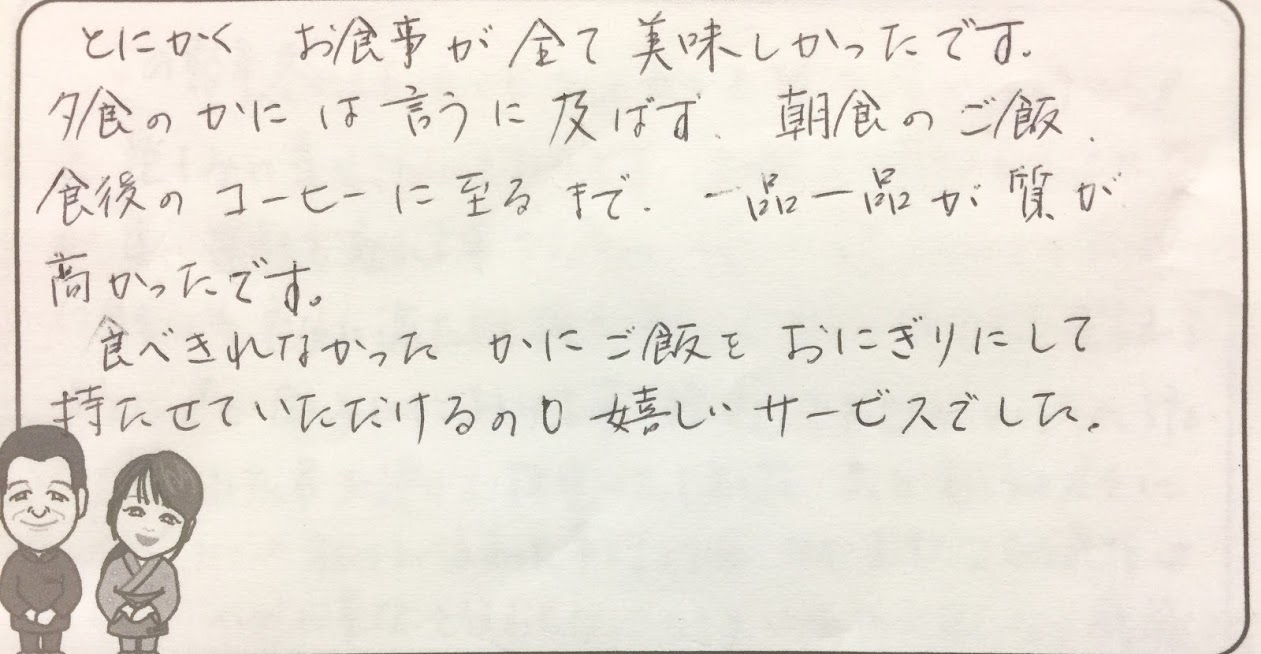 とにかく お食事が全て美味しかったです。
夕食のかには言うに及ばず、朝食のご飯、
食後のコーヒーに至るまで、一品一品が質が
高かったです。
食べきれなかった かにご飯を おにぎりにして
持たせていただけるのも嬉しいサービスでした。